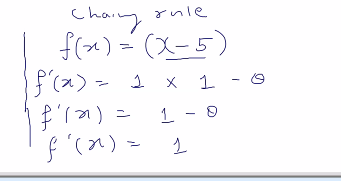 Chaing rule
f(x) = (x-5)
f'(x) = 1 × 1 - 0
f'(x) = 1 - 0
f'(x) = 1